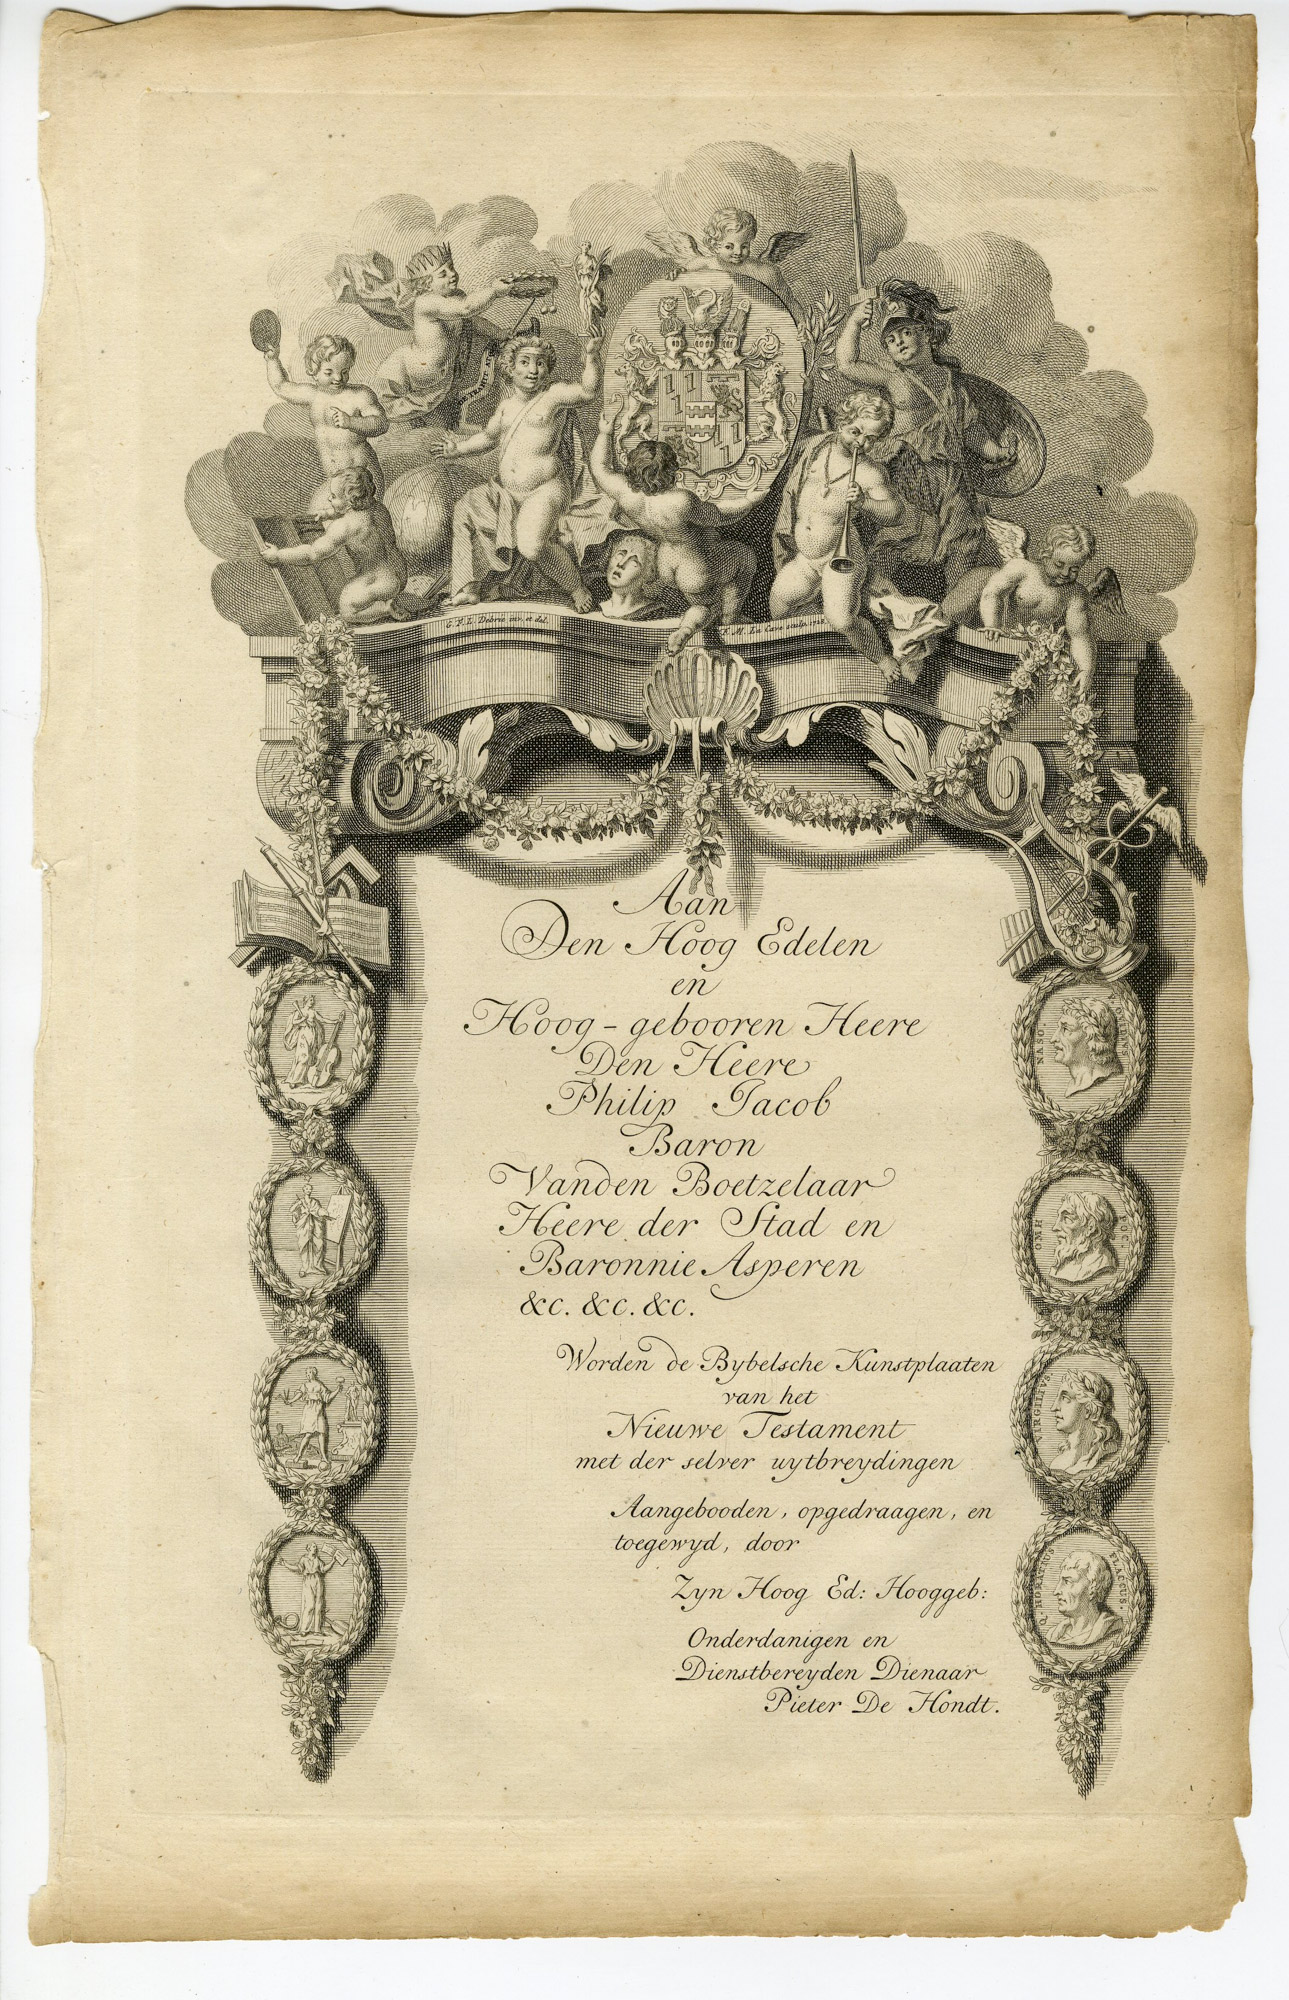 G. F. L. Debrie inv. et del.
F. M. La Cave sculp. 1728
Aan
Den Hoog Edelen
en
Hoog-gebooren Heere
Den Heere
Philip Jacob
Baron
Vanden Boetzelaar
Heere der Stad en
Baronnie Asperen
&c. &c. &c.
Worden de Bybelsche Kunstplaaten
van het
Nieuwe Testament
met der selver uytbreydingen
Aangebooden, opgedraagen, en
toegewyd, door
Zyn Hoog Ed: Hooggeb:
Onderdanigen en
Dienstbereyden Dienaar
Pieter De Hondt.
NASO
VIRGILIUS
Q. HORATIUS FLACCUS.